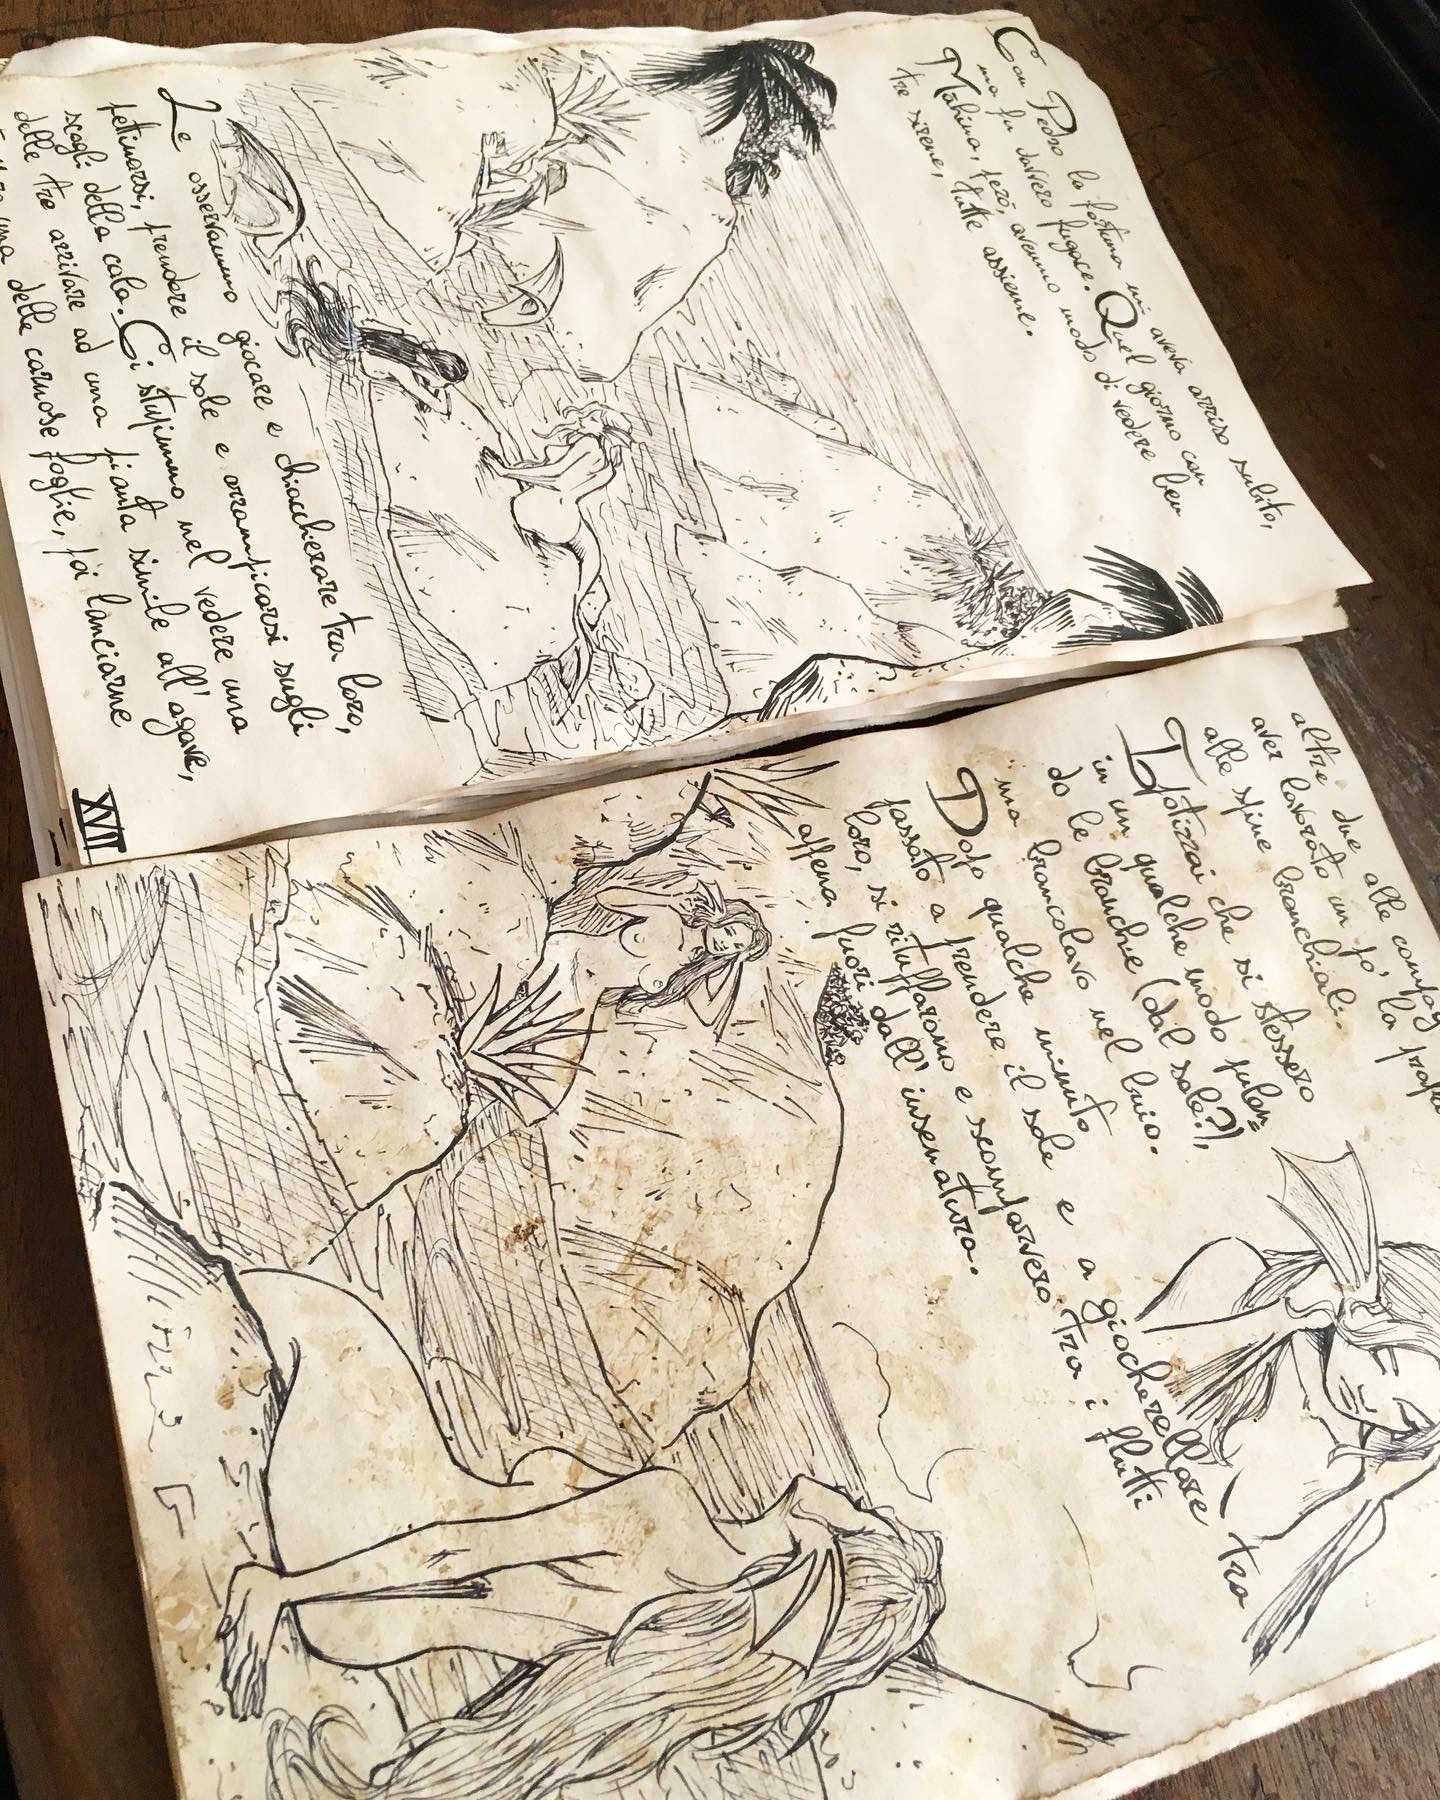 Con Pedro la fortuna mi aveva arriso subito,
ma fu davvero fugace. Quel giorno con
Mahina, però, avemmo modo di vedere ben
tre sirene, tutte assieme.
Le osservammo giocare e chiacchierare tra loro,
pettinarsi, prendere il sole e arrampicarsi sugli
scogli della cala. Ci stupimmo nel vedere una
delle tre arrivare ad una pianta simile all'agave,
una delle carnose foglie, poi lanciarne
XVII
altre due alle
aver lavorato un po', la
alle spine branchiali.
Ipotizzai che si stessero
in un qualche modo pulen=
do le branchie (dal sale?),
ma brancolavo nel buio.
Dopo qualche minuto
passato a prendere il sole e a giocherellare tra
loro, si rituffarono e scomparvero tra i flutti
appena fuori dall'insenatura.